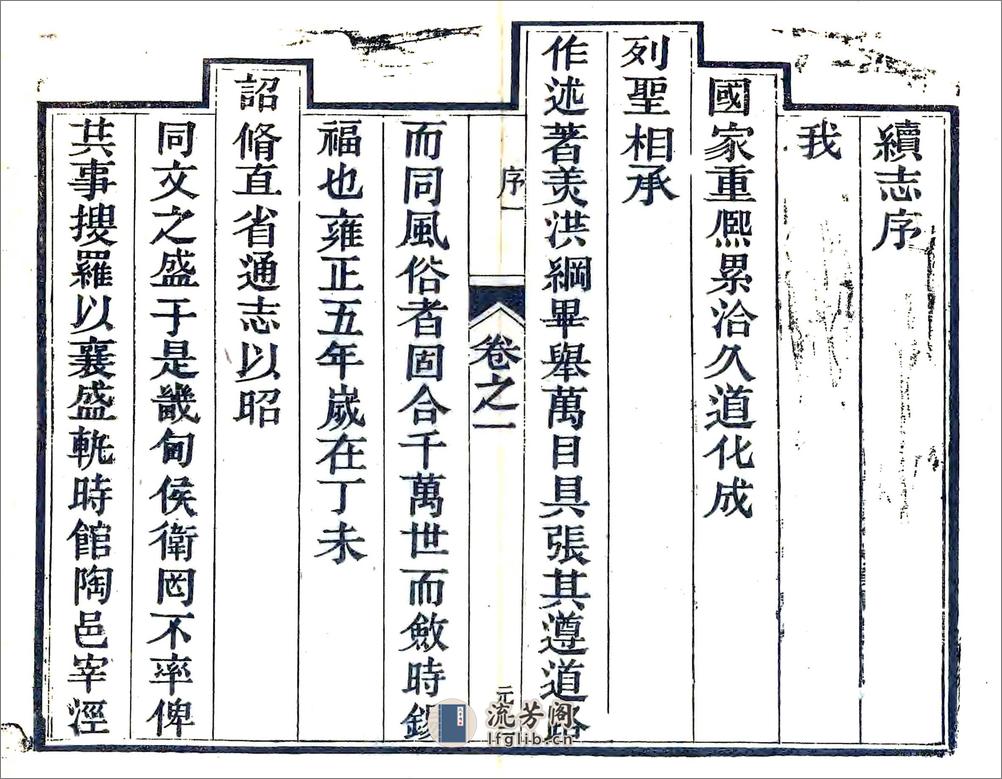 續志序
我
國家重熈累洽久道化成
列聖相承
作述著美洪綱畢舉萬目具張其遵道路
序一
卷之一
元
而同風俗者固合千萬世而斂時錫
福也雍正五年歲在丁未
詔脩直省通志以昭
同文之盛于是畿甸侯衛罔不率俾
共事搜羅以襄盛軌時館陶邑宰涇
流芳阁
lfglib.cn